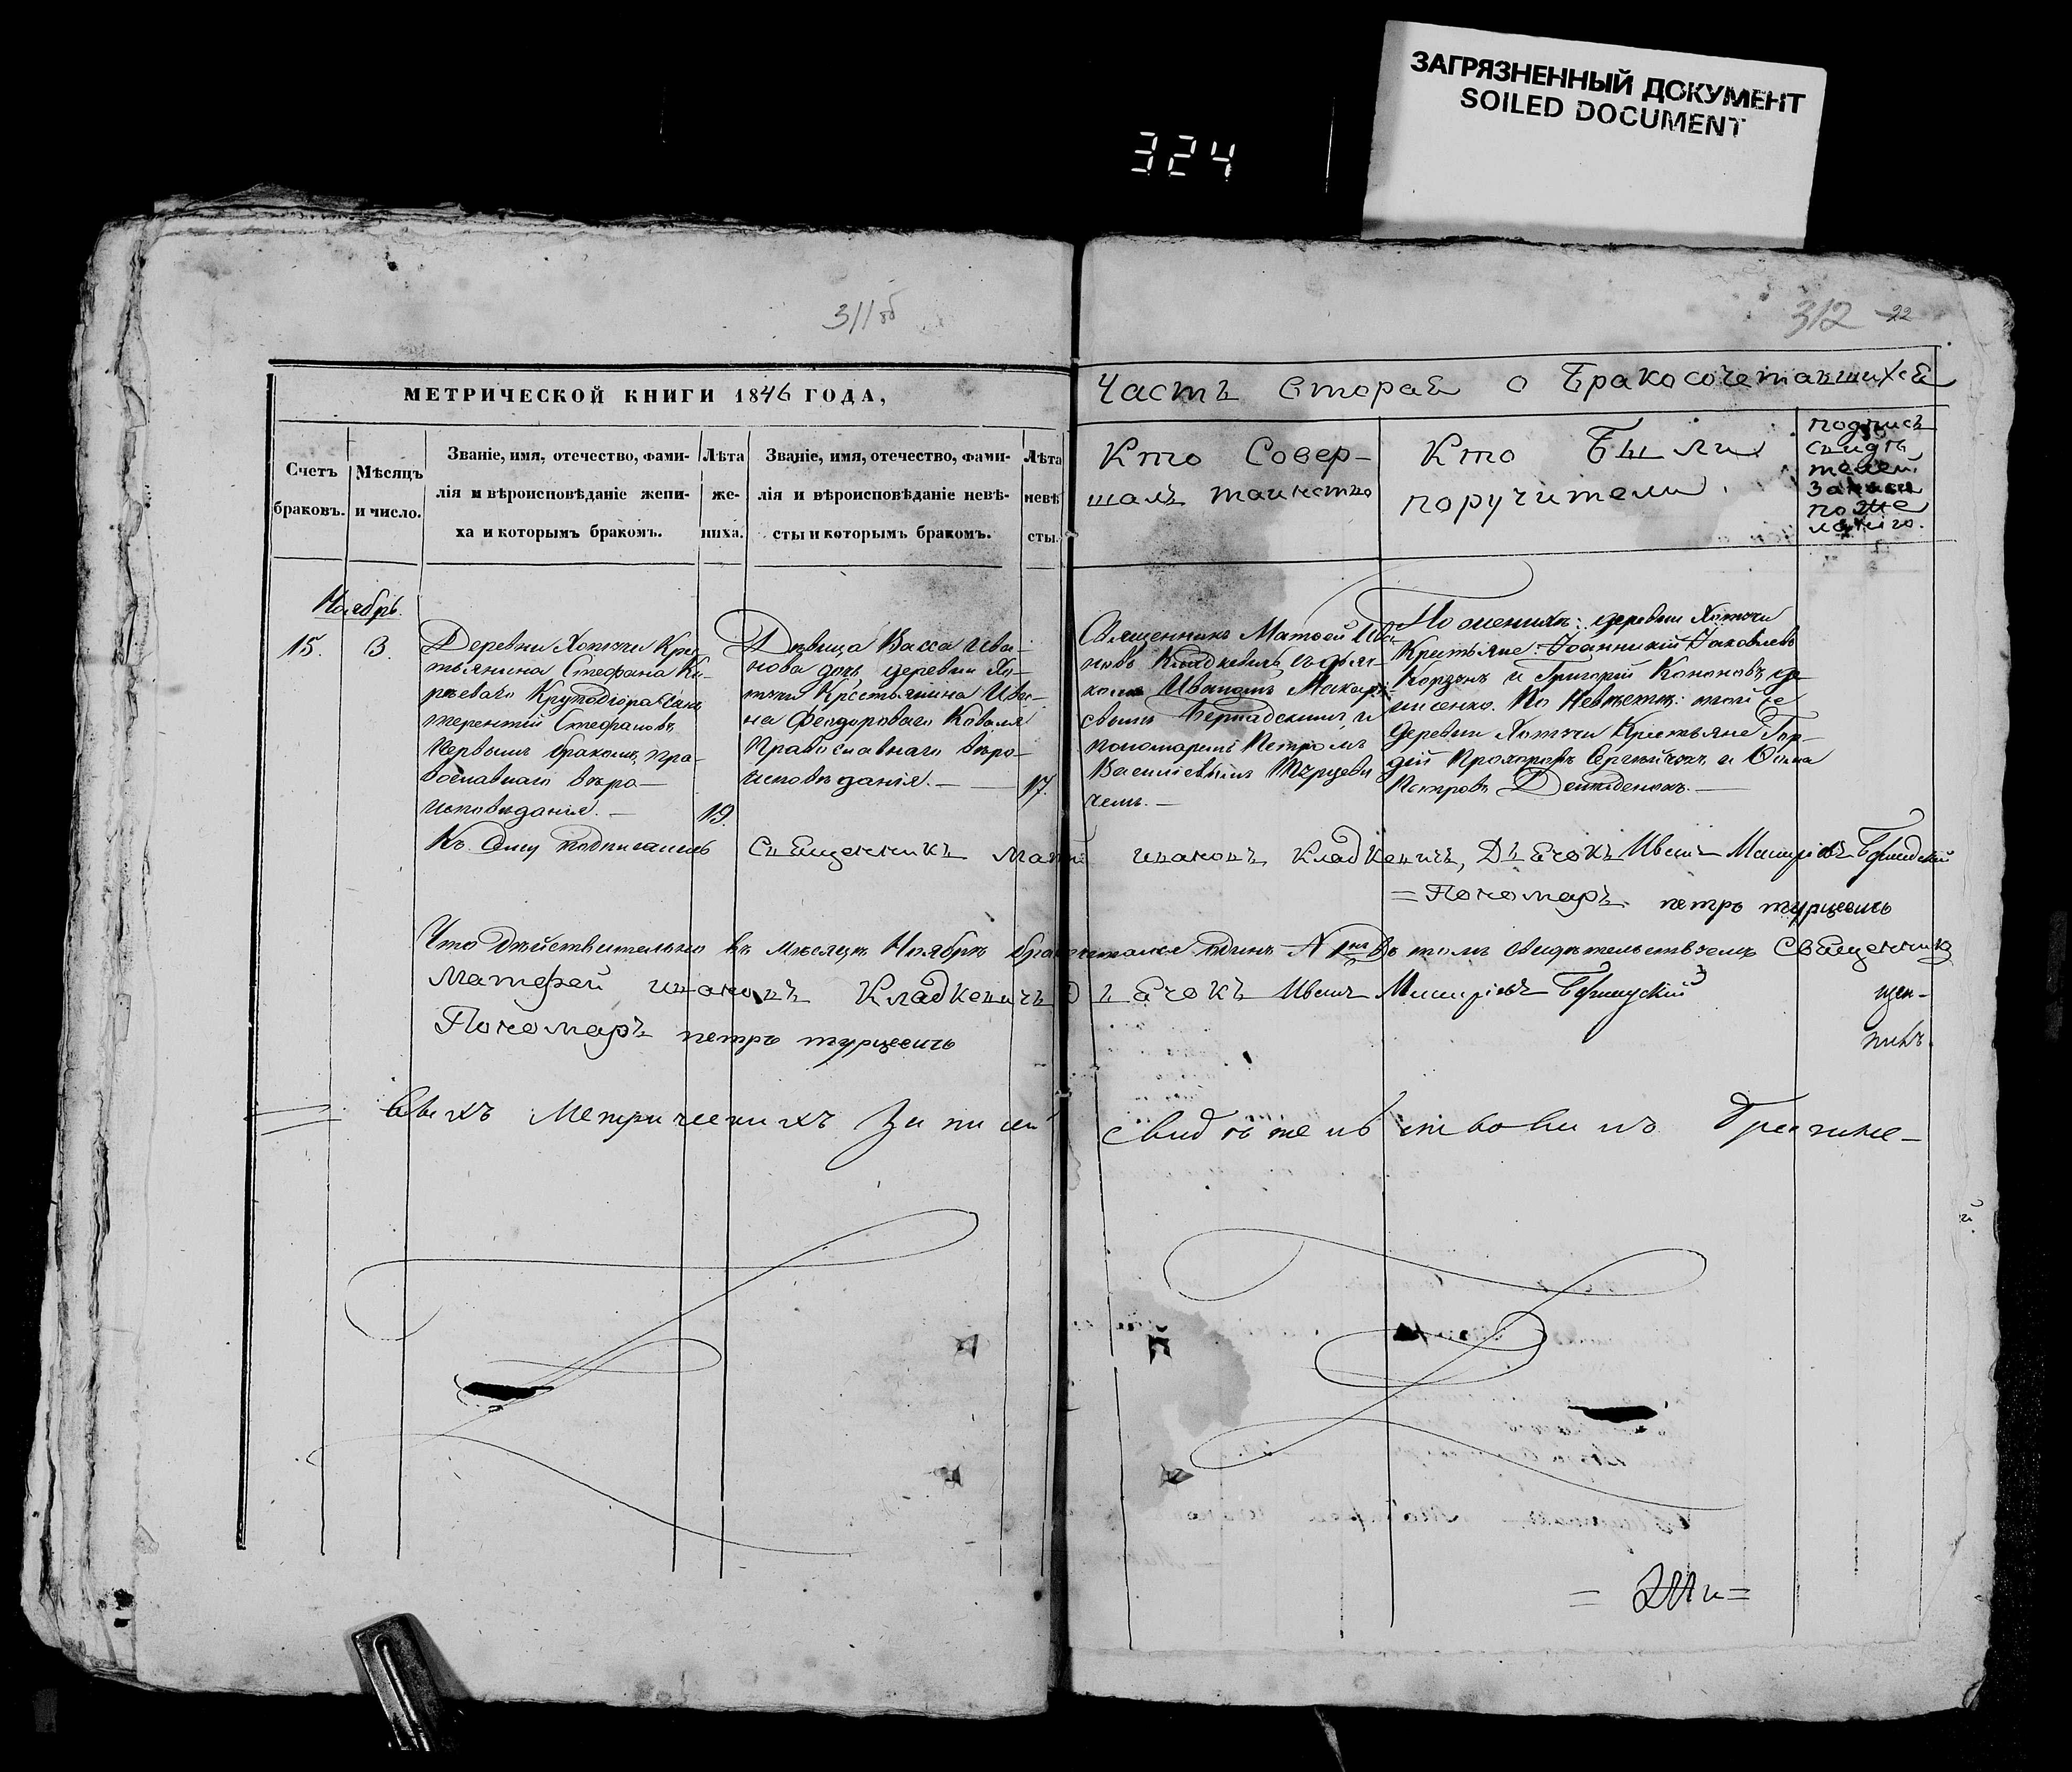 ЗАГРЯЗНЕННЫЙ ДОКУМЕНТ
SOILED DOCUMENT
324
311об
312 22
МЕТРИЧЕСКОЙ КНИГИ 1846 ГОДА,
Часть вторая о Бракосочетавшихся
Счетъ
браковъ.
Мѣсяцъ
и число.
Званіе, имя, отечество, фами-
лія и вѣроисповѣданіе жени-
ха и которымъ бракомъ.
Лѣта
же-
ниха.
Званіе, имя, отечество, фами-
лія и вѣроисповѣданіе невѣ-
сты и которымъ бракомъ.
Лѣта
невѣ
сты.
Кто Совер-
шалъ таинство
Кто Были
поручители.
подпись
свидѣ
телей
записи
по же
ланію.
Ноябрь.
15.
3.
Деревни Хотичи Кре-
стьянина Стефана Ки-
реваго сынъ
терентій Стефановъ
первымъ бракомъ, пра-
вославнаго вѣро-
исповѣданія. —
19.
Дѣвица Васса Ива-
нова дочь, деревни Хо-
тичи Крестьянина Ива-
на Феодороваго Коваля
Православнаго вѣро-
исповѣданія. —
17.
Священникъ Матѳей Ива-
новъ Кладкевичъ съ дья-
комъ Иваномъ Макарі-
евымъ Бернадскимъ и
пономаремъ Петромъ
Васильевымъ Турцеви
чемъ. —
По женихѣ: деревни Хотичи
Крестьяне: Іоанникій Яковлевъ
и Григорій Кононовъ
По Невѣстѣ: той же
деревни Хотичи Крестьяне Гор-
дій Прохоровъ и Осипъ
Петровъ
Къ Сему подписались Священникъ Матфей Ивановъ Кладкевичъ, Дьячокъ Иванъ Макаріевъ Бернадскій
= Пономарь петръ турцевичъ
Что дѣйствительно въ мѣсяцѣ Ноябрѣ бракосочетался одинъ № въ томъ свидѣтельствуемъ Священникъ
Матфей Ивановъ Кладкевичъ Дьячокъ Иванъ Макаріевъ Бернадскій
Пономарь петръ турцевичъ
щен-
никъ.
Сихъ Метрическихъ Записей свидѣтельствовалъ